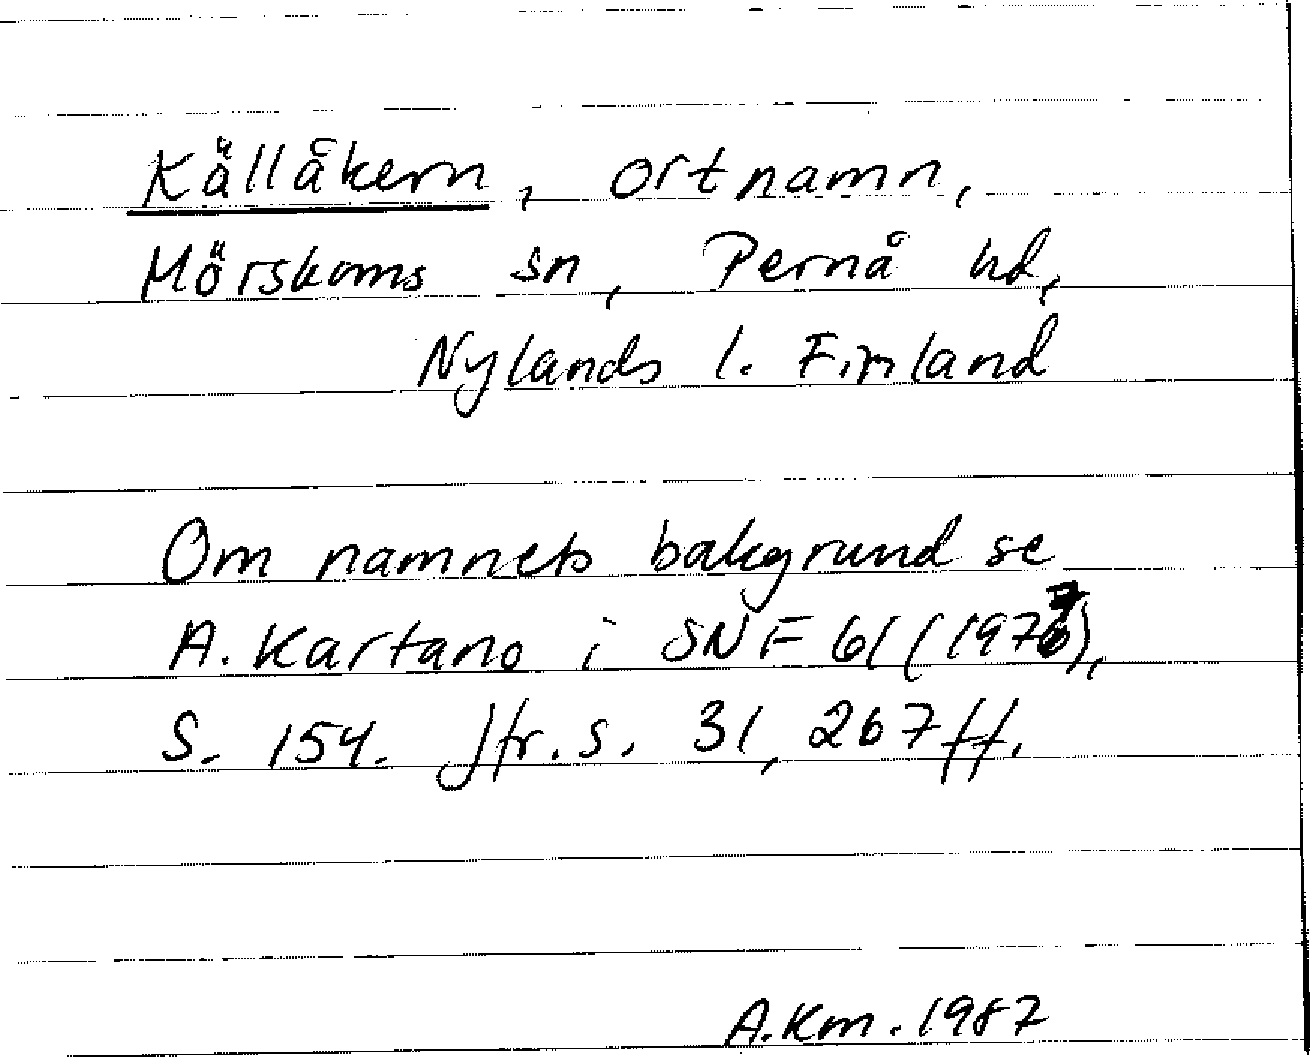 Källåkern, ortnamn,
Mörskoms sn, Pernå hd,
Nylands l. Finland
Om namnets bakgrund se
A. Kartano i SNF 61 (1977),
S. 154. Jfr. s. 31, 267 ff.
A.Km. 1987